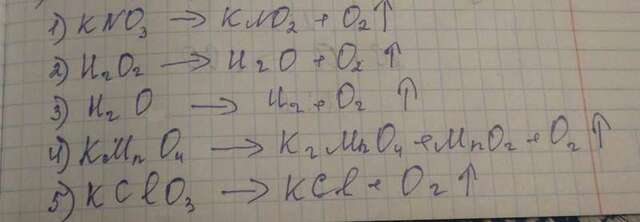 1) KNO₃ → KNO₂ + O₂↑
2) H₂O₂ → H₂O + O₂ ↑
3) H₂O → H₂ + O₂ ↑
4) KMnO₄ → K₂MnO₄ + MnO₂ + O₂ ↑
5) KClO₃ → KCl + O₂ ↑